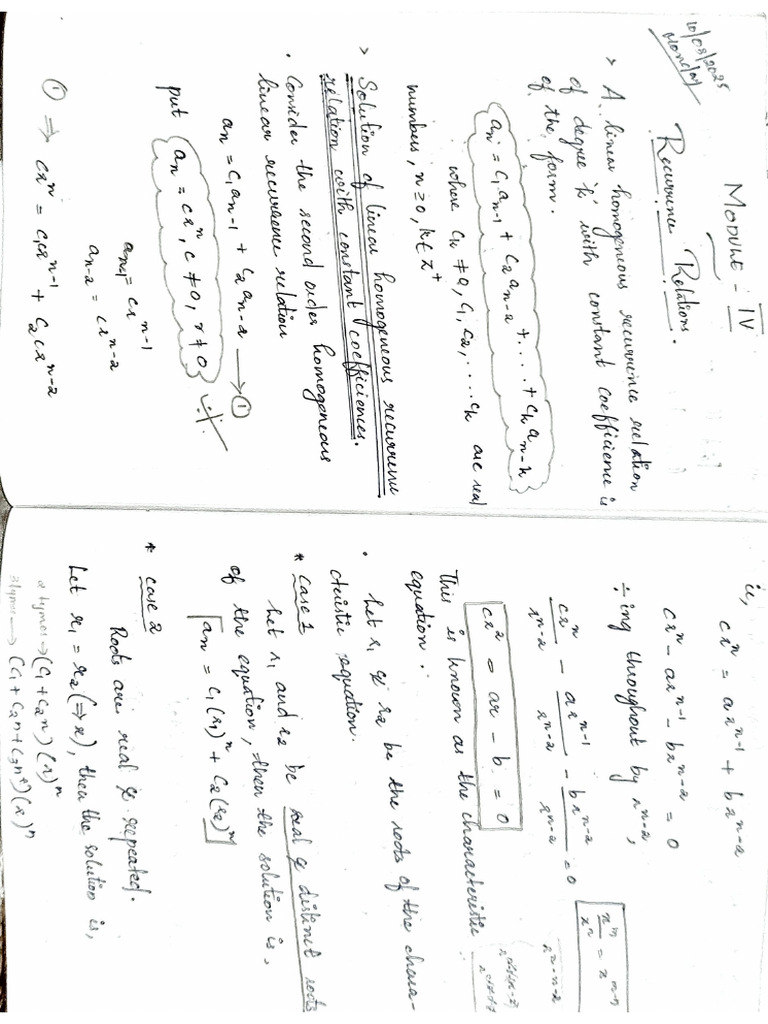 10/03/2025
Monday
MODULE - IV
Recurrence Relations.
> A linear homogeneous recurrence relation
of degree 'k' with constant coefficience is
of the form.
an = c1an-1 + c2an-2 + .... + ckan-k
where ck ≠ 0, c1, c2, .... ck are real
numbers, n ≥ 0, k ∈ z+
> Solution of linear homogeneous recurrence
relation with constant coefficiences.
• Consider the second order homogeneous
linear recurrence relation
an = c1an-1 + c2an-2 → ①
put an = cr^n, c ≠ 0, r ≠ 0
an-1 = cr^n-1
an-2 = cr^n-2
① ⇒ cr^n = c1cr^n-1 + c2cr^n-2
ie, cr^n = ar^n-1 + br^n-2
cr^n - ar^n-1 - br^n-2 = 0
÷ing throughout by r^n-2,
cr^n/r^n-2 - ar^n-1/r^n-2 - br^n-2/r^n-2 = 0
x^m/x^n = x^m-n
cr^2 - ar - b = 0
This is known as the characteristic
equation.
• Let r1 & r2 be the roots of the chara-
cteristic equation.
* Case 1
Let r1 and r2 be real & distinct roots
of the equation, then the solution is,
an = c1(r1)^n + c2(r2)^n
* Case 2
Roots are real & repeated.
Let r1 = r2 (⇒r), then the solution is,
2 tymes → (c1 + c2n)(r)^n
3 tymes → (c1 + c2n + c3n^2)(r)^n